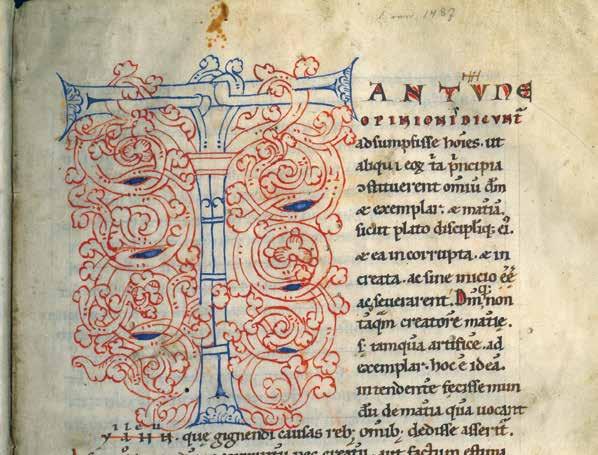 1487
TANTVNE
OPINIONISDICVNT̄
adsumpsisse hoīes. ut
aliqui eoꝝ t̄ia p̄ncipia
ↄstituerent omiū dm̄
æ exemplar. æ matiā.
sicut plato discipliq; eiꝰ.
æ ea incorrupta. æ in
creata. ac sine inicio eē
ac, seuerarent. Dmq; non
tāqm̄ creatorē matie.
s; tamqua artificē. ad
exemplar. hoc ē idea.
intendente fecisse mun
dū de matia qua uocant
ileu
yλHH. que gignendi causas reb; omib; dedisse asserit.